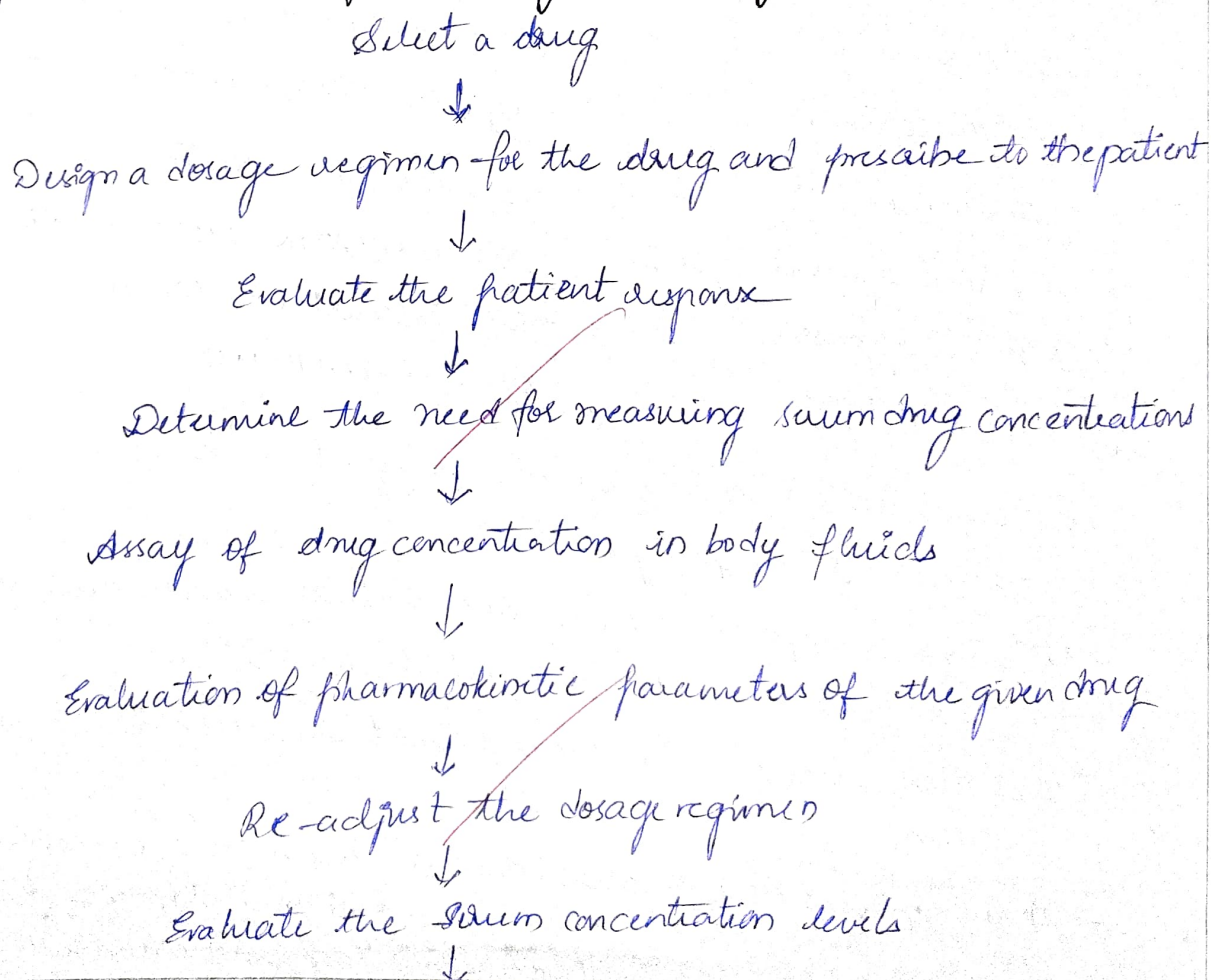 Select a drug
↓
Design a dosage regimen for the drug and prescribe to the patient
↓
Evaluate the patient response
↓
Determine the need for measuring serum drug concentrations
↓
Assay of drug concentration in body fluids
↓
Evaluation of pharmacokinetic parameters of the given drug
↓
Re-adjust the dosage regimen
↓
Evaluate the serum concentration levels
↓